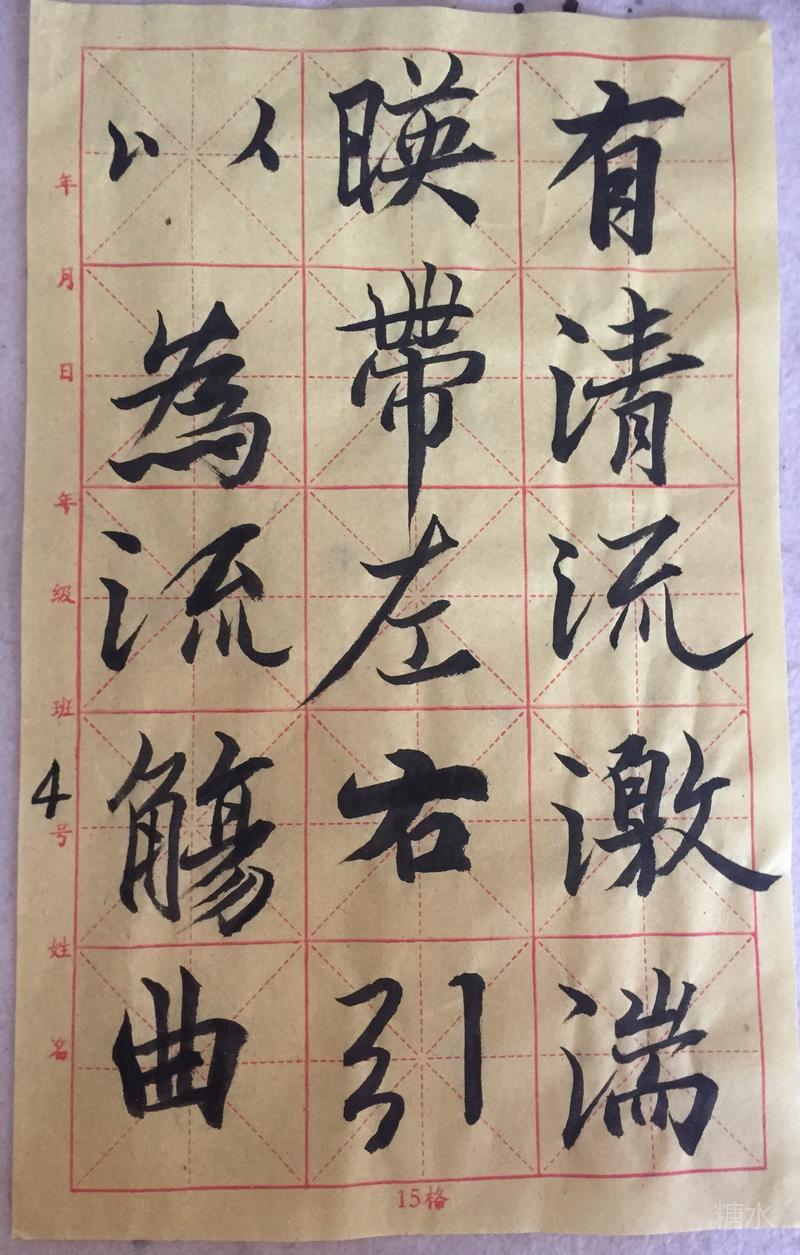 有清流激湍
暎帶左右引
以為流觴曲
年月日
年級班
4号
姓名
15格
糖水